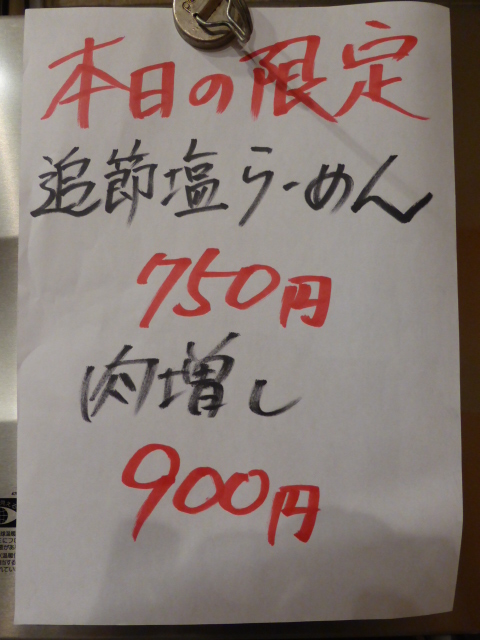 本日の限定
追節塩らーめん
750円
肉増し
900円